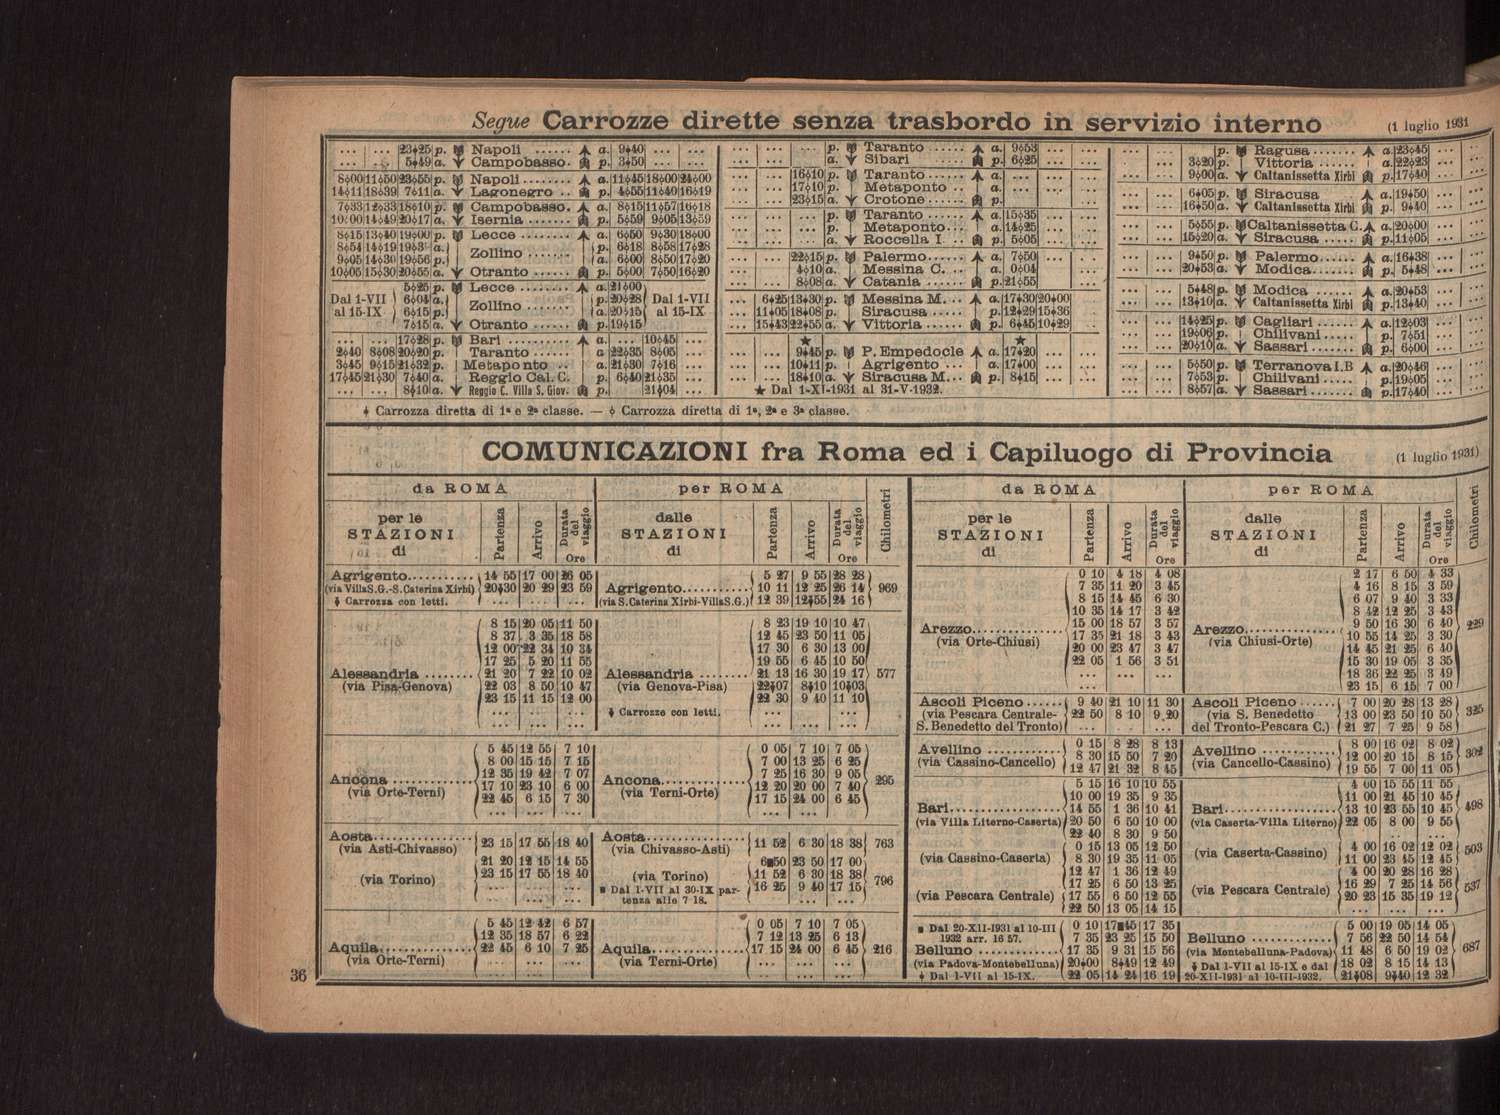 Segue Carrozze dirette senza trasbordo in servizio interno (1 luglio 1931
... ... 23 25 p. Napoli ...... a. 9 40 ... ...
... ... 5 49 a. Campobasso p. 3 50 ... ...
8 00 11 50 23 55 p. Napoli ...... a. 11 45 18 00 24 00
14 11 18 39 7 11 a. Lagonegro .. p. 4 55 11 40 16 19
7 33 12 33 18 10 p. Campobasso. a. 8 15 11 57 16 18
10 00 14 49 20 17 a. Isernia ...... p. 5 59 9 05 13 59
8 15 13 40 19 00 p. Lecce ........ a. 6 50 9 30 18 00
8 54 14 19 19 3 a. Zollino ...... p. 6 18 8 58 17 28
9 05 14 30 19 56 p. a. 6 00 8 50 17 20
10 05 15 30 20 55 a. Otranto ...... p. 5 00 7 50 16 20
5 25 p. Lecce ........ a. 21 00
Dal 1-VII al 15-IX 6 04 a. Zollino ....... p. 20 28 Dal 1-VII al 15-IX
6 15 p. a. 20 15
7 15 a. Otranto ...... p. 19 15
... ... 17 28 p. Bari .......... a. ... 10 45 ...
2 40 8 08 20 20 p. Taranto ..... a 22 35 8 05 ...
3 45 9 15 21 32 p. Metaponto .. a. 21 30 7 16 ...
17 45 21 30 7 40 a. Reggio Cal. C. p. 6 40 21 35 ...
... ... 8 10 a. Reggio C. Villa S. Giov. p. 21 04 ...
... ... ... p. Taranto ...... a. 9 53 ... ...
... ... ... a. Sibari p. 6 25 ... ...
... ... 16 10 p. Taranto ...... a. ... ... ...
... ... 17 10 p. Metaponto .. a. ... ... ...
... ... 23 15 a. Crotone .. p. ... ...
... ... ... p. Taranto ...... a. 15 35 ... ...
... ... ... p. Metaponto... a. 14 25 ... ...
... ... ... a. Roccella I. .. p. 5 05 ... ...
... ... 22 15 p. Palermo...... a. 7 50 ... ...
... ... 4 10 a. Messina C. .. a. 0 04 ... ...
... ... 8 08 a. Catania ...... p. 21 55 ... ...
... 6 25 13 30 p. Messina M... a. 17 30 20 00 ...
... 11 05 18 08 p. Siracusa ..... p. 12 29 15 36 ...
... 15 43 22 55 a. Vittoria ...... p. 6 45 10 29 ...
★ ★
... ... 9 45 p. P. Empedocle a. 17 20 ... ...
... ... 10 11 p. Agrigento ... a. 17 00 ... ...
... ... 18 10 a. Siracusa M... p. 8 15 ... ...
★ Dal 1-XI-1931 al 31-V-1932.
... ... p. Ragusa ....... a. 23 45 ... ...
... 3 20 p. Vittoria ...... a. 22 23 ... ...
... 9 00 a. Caltanissetta Xirbi p. 17 40 ... ...
... 6 05 p. Siracusa a. 19 50 ... ...
... 16 50 a. Caltanissetta Xirbi p. 9 40 ... ...
... 5 55 p. Caltanissetta C. a. 20 00 ... ...
... 15 20 a. Siracusa...... p. 11 05 ... ...
... 9 50 p. Palermo...... a. 16 38 ... ...
... 20 53 a. Modica........ p. 5 48 ... ...
... 5 48 p. Modica ....... a. 20 53 ... ...
... 13 10 a. Caltanissetta Xirbi p. 13 40 ... ...
... 14 25 p. Cagliari ...... a. 12 03 ... ...
... 19 06 p. Chilivani..... p. 7 51 ... ...
... 20 10 a. Sassari ....... p. 6 00 ... ...
... 5 50 p. Terranova I. B a. 20 46 ... ...
... 7 53 p. Chilivani..... p. 19 05 ... ...
... 8 57 a. Sassari ....... p. 17 40 ... ...
Carrozza diretta di 1ª e 2ª classe. — Carrozza diretta di 1ª, 2ª e 3ª classe.
COMUNICAZIONI fra Roma ed i Capiluogo di Provincia (1 luglio 1931)
da ROMA per ROMA Chilometri
per le STAZIONI di Partenza Arrivo Durata del viaggio Ore
dalle STAZIONI di Partenza Arrivo Durata del viaggio Ore
Agrigento........... 14 55 17 00 26 05
(via Villa S.G.-S. Caterina Xirbi) 20 30 20 29 23 59
Carrozza con letti. ... ... ...
5 27 9 55 28 28
Agrigento........... 10 11 12 25 26 14 969
(via S. Caterina Xirbi-Villa S.G.) 12 39 12 55 24 16
Alessandria ........
(via Pisa-Genova)
8 15 20 05 11 50
8 37 3 35 18 58
12 00 22 34 10 34
17 25 5 20 11 55
21 20 7 22 10 02
22 03 8 50 10 47
23 15 11 15 12 00
... ... ...
... ... ...
Alessandria ........
(via Genova-Pisa)
Carrozze con letti.
8 23 19 10 10 47
12 45 23 50 11 05
17 30 6 30 13 00
19 55 6 45 10 50
21 13 16 30 19 17 577
22 07 8 10 10 03
22 30 9 40 11 10
... ... ...
... ... ...
Ancona ............
(via Orte-Terni)
5 45 12 55 7 10
8 00 15 15 7 15
12 35 19 42 7 07
17 10 23 10 6 00
22 45 6 15 7 30
... ... ...
Ancona.............
(via Terni-Orte)
0 05 7 10 7 05
7 00 13 25 6 25
7 25 16 30 9 05
12 20 20 00 7 40 295
17 15 24 00 6 45
... ... ...
Aosta............... 23 15 17 55 18 40
(via Asti-Chivasso)
21 20 12 15 14 55
(via Torino) 23 15 17 55 18 40
... ... ...
... ... ...
Aosta............... 11 52 6 30 18 38 763
(via Chivasso-Asti)
6■50 23 50 17 00
(via Torino) 11 52 6 30 18 38 796
■ Dal 1-VII al 30-IX partenza alle 7 18. 16 25 9 40 17 15
... ... ...
Aquila..............
(via Orte-Terni)
5 45 12 42 6 57
12 35 18 57 6 22
22 45 6 10 7 25
... ... ...
... ... ...
Aquila..............
(via Terni-Orte)
0 05 7 10 7 05
7 12 13 25 6 13
17 15 24 00 6 45 216
... ... ...
... ... ...
da ROMA per ROMA Chilometri
per le STAZIONI di Partenza Arrivo Durata del viaggio Ore
dalle STAZIONI di Partenza Arrivo Durata del viaggio Ore
Arezzo..............
(via Orte-Chiusi)
0 10 4 18 4 08
7 35 11 20 3 45
8 15 14 45 6 30
10 35 14 17 3 42
15 00 18 57 3 57
17 35 21 18 3 43
20 00 23 47 3 47
22 05 1 56 3 51
... ... ...
... ... ...
Arezzo..............
(via Chiusi-Orte)
2 17 6 50 4 33
4 16 8 15 3 59
6 07 9 40 3 33
8 42 12 25 3 43
9 50 16 30 6 40 229
10 55 14 25 3 30
14 45 21 25 6 40
15 30 19 05 3 35
18 36 22 25 3 49
23 15 6 15 7 00
Ascoli Piceno...... 9 40 21 10 11 30
(via Pescara Centrale- 22 50 8 10 9 20
S. Benedetto del Tronto) ... ... ...
Ascoli Piceno...... 7 00 20 28 13 28
(via S. Benedetto 13 00 23 50 10 50 325
del Tronto-Pescara C.) 21 27 7 25 9 58
Avellino ...........
(via Cassino-Cancello)
0 15 8 28 8 13
8 30 15 50 7 20
12 47 21 32 8 45
Avellino ...........
(via Cancello-Cassino)
8 00 16 02 8 02
12 00 20 15 8 15 302
19 55 7 00 11 05
Bari................
(via Villa Literno-Caserta)
5 15 16 10 10 55
10 00 19 35 9 35
14 55 1 36 10 41
20 50 6 50 10 00
22 40 8 30 9 50
Bari................
(via Caserta-Villa Literno)
4 00 15 55 11 55
11 00 21 45 10 45
13 10 23 55 10 45 498
22 05 8 00 9 55
... ... ...
(via Cassino-Caserta)
0 15 13 05 12 50
8 30 19 35 11 05
(via Caserta-Cassino)
4 00 16 02 12 02 503
11 00 23 45 12 45
(via Pescara Centrale)
12 47 1 36 12 49
17 25 6 50 13 25
17 55 6 50 12 55
22 50 13 05 14 15
(via Pescara Centrale)
4 00 20 28 16 28
16 29 7 25 14 56 537
20 23 15 35 19 12
... ... ...
■ Dal 20-XII-1931 al 10-III 1932 arr. 16 57.
Belluno ............
(via Padova-Montebelluna)
Dal 1-VII al 15-IX.
0 10 17■45 17 35
7 35 23 25 15 50
17 35 9 31 15 56
20 00 8 49 12 49
22 05 14 24 16 19
Belluno ............
(via Montebelluna-Padova)
Dal 1-VII al 15-IX e dal
20-XII-1931 al 10-III-1932.
5 00 19 05 14 05
7 56 22 50 14 54
11 48 6 50 19 02 687
18 02 8 15 14 13
21 08 9 40 12 32
36